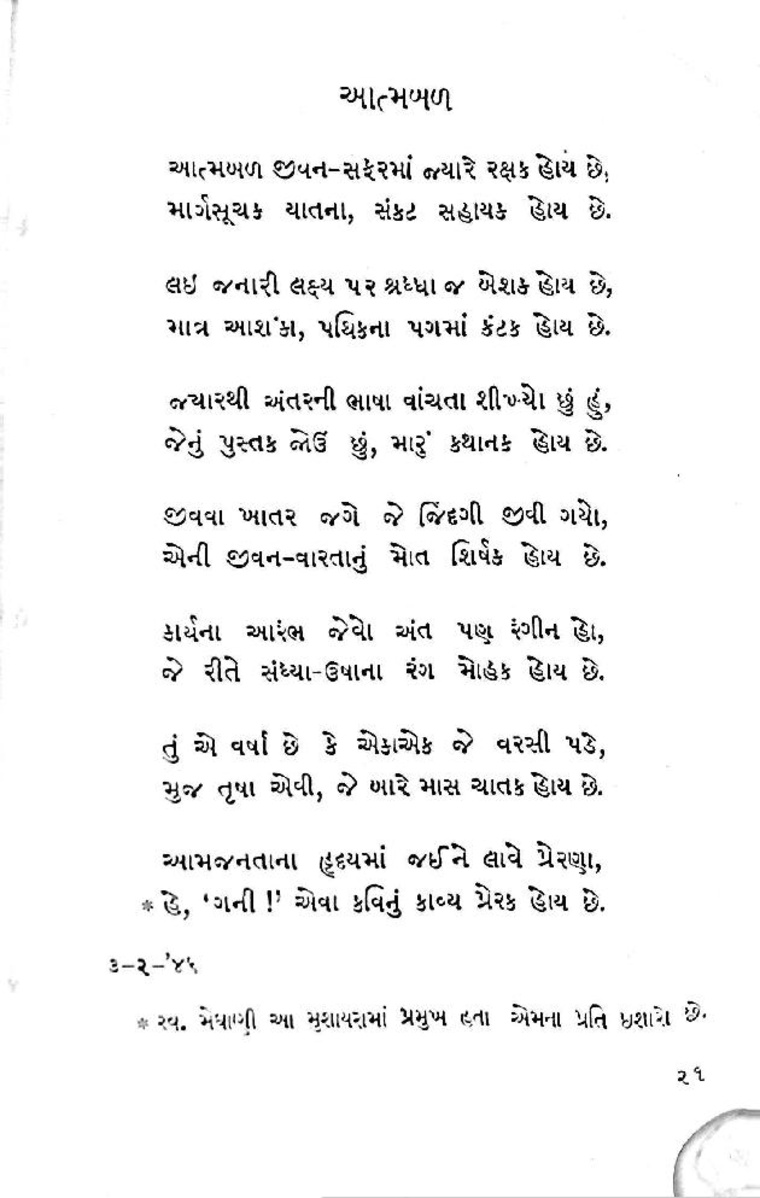 આત્મબળ
આત્મબળ જીવન-સફરમાં જ્યારે રક્ષક હોય છે,
માર્ગસૂચક યાતના, સંકટ સહાયક હોય છે.
લઇ જનારી લક્ષ્ય પર શ્રધ્ધા જ બેશક હોય છે,
માત્ર આશંકા, પથિકના પગમાં કંટક હોય છે.
જ્યારથી અંતરની ભાષા વાંચતા શીખ્યો છું હું,
જેનું પુસ્તક જોઉં છું, મારું કથાનક હોય છે.
જીવવા ખાતર જગે જે જિંદગી જીવી ગયો,
એની જીવન-વારતાનું મોત શિર્ષક હોય છે.
કાર્યના આરંભ જેવો અંત પણ રંગીન હો,
જે રીતે સંધ્યા-ઉષાના રંગ મોહક હોય છે.
તું એ વર્ષા છે કે એકાએક જે વરસી પડે,
મુજ તૃષા એવી, જે બારે માસ ચાતક હોય છે.
આમજનતાના હૃદયમાં જઈને લાવે પ્રેરણા,
* હે, ‘ગની !’ એવા કવિનું કાવ્ય પ્રેરક હોય છે.
૩-૨-’૪૬
* સ્વ. મેઘાણી આ મુશાયરામાં પ્રમુખ હતા એમના પ્રતિ ઇશારો છે.
૨૧